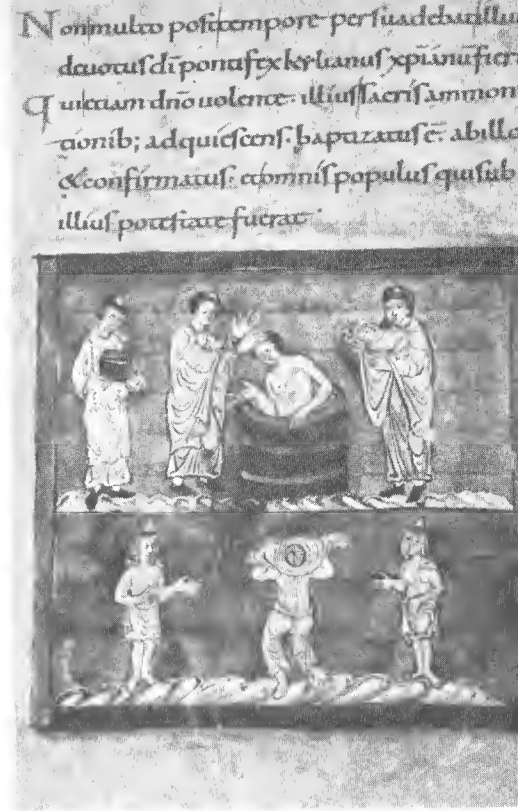 Non multo post tempore persuadebat illu
deuotus dī pontifex kylianus xp̄ianū fieri
qui etiam dn̄o uolente· illius sacris ammoni
tionib; adquiescens· baptizatus ē· ab illo
& confirmatus· et omnis populus qui sub
illius potestate fuerat·